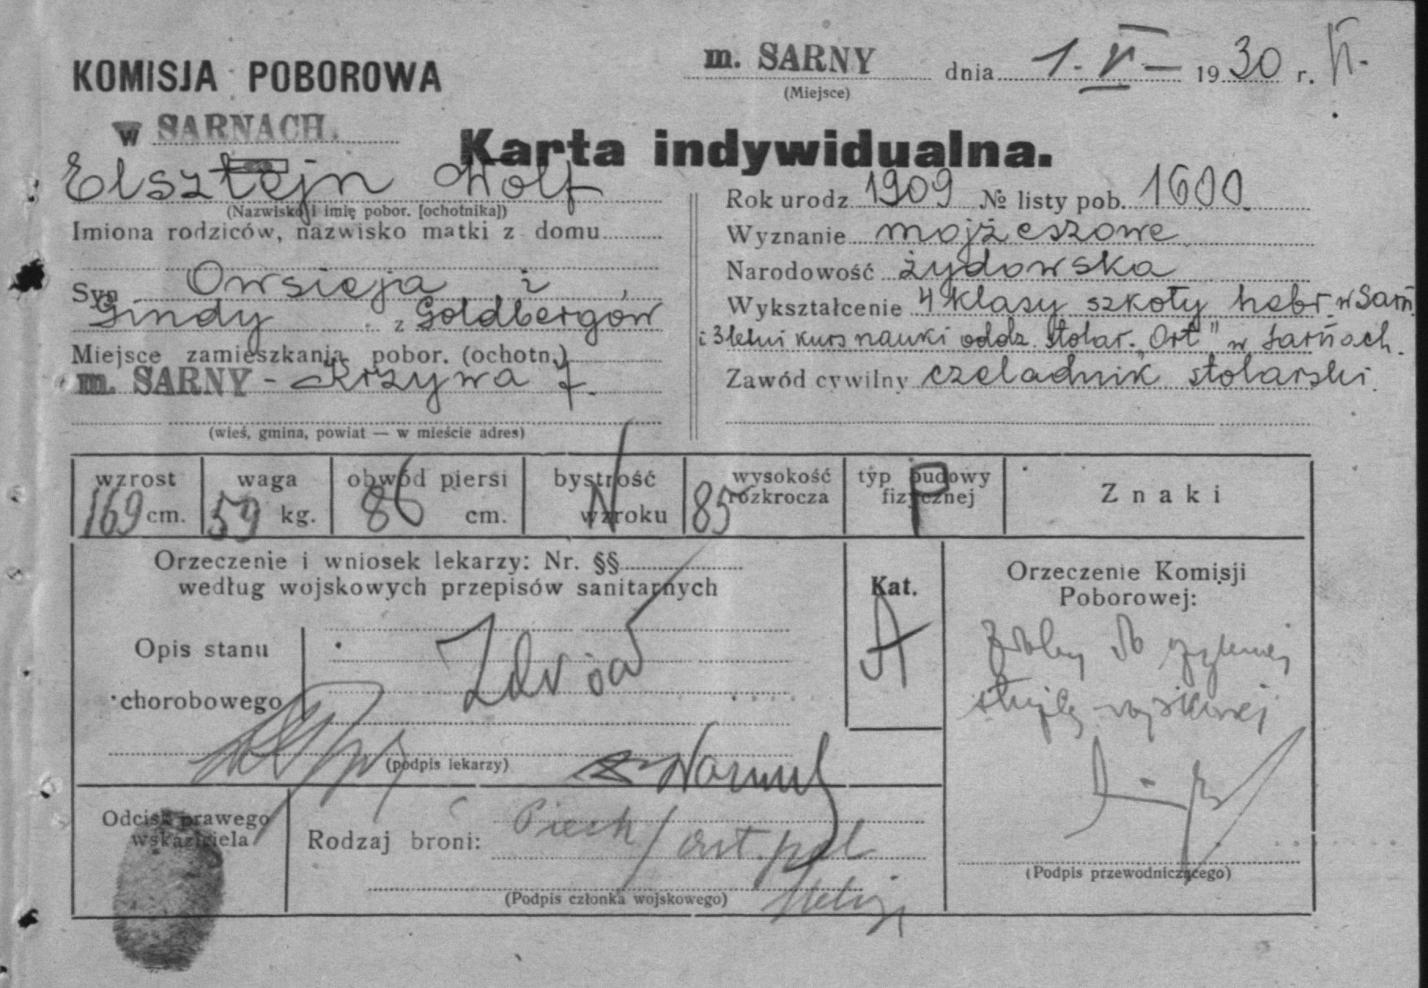 KOMISJA POBOROWA
w SARNACH.
m. SARNY dnia 1. VI 1930 r. VI.
(Miejsce)
Karta indywidualna.
Elsztejn Wolf
(Nazwisko i imię pobor. [ochotnika])
Imiona rodziców, nazwisko matki z domu
Syn Owsieja i
Gindy z Goldbergów
Miejsce zamieszkania pobor. (ochotn.)
m. SARNY - Krzywa 7.
(wieś, gmina, powiat — w mieście adres)
Rok urodz 1909 № listy pob. 1600.
Wyznanie mojżeszowe
Narodowość żydowska
Wykształcenie 4 klasy szkoły hebr. w Sarn
i 3 letni kurs nauki oddz. stolar. „Ort" w Sarnach.
Zawód cywilny czeladnik stolarski.
wzrost 169 cm.
waga 59 kg.
obwód piersi 86 cm.
bystrość wzroku N
wysokość rozkrocza 85
typ budowy fizycznej P
Znaki
Orzeczenie i wniosek lekarzy: Nr. §§
według wojskowych przepisów sanitarnych
Opis stanu
chorobowego
Zdrów
(podpis lekarzy)
Kat.
A
Orzeczenie Komisji
Poborowej:
Zdolny do czynnej
służby wojskowej
(Podpis przewodniczącego)
Odcisk prawego
wskaziciela
Rodzaj broni: Piech / art. pol
(Podpis członka wojskowego)